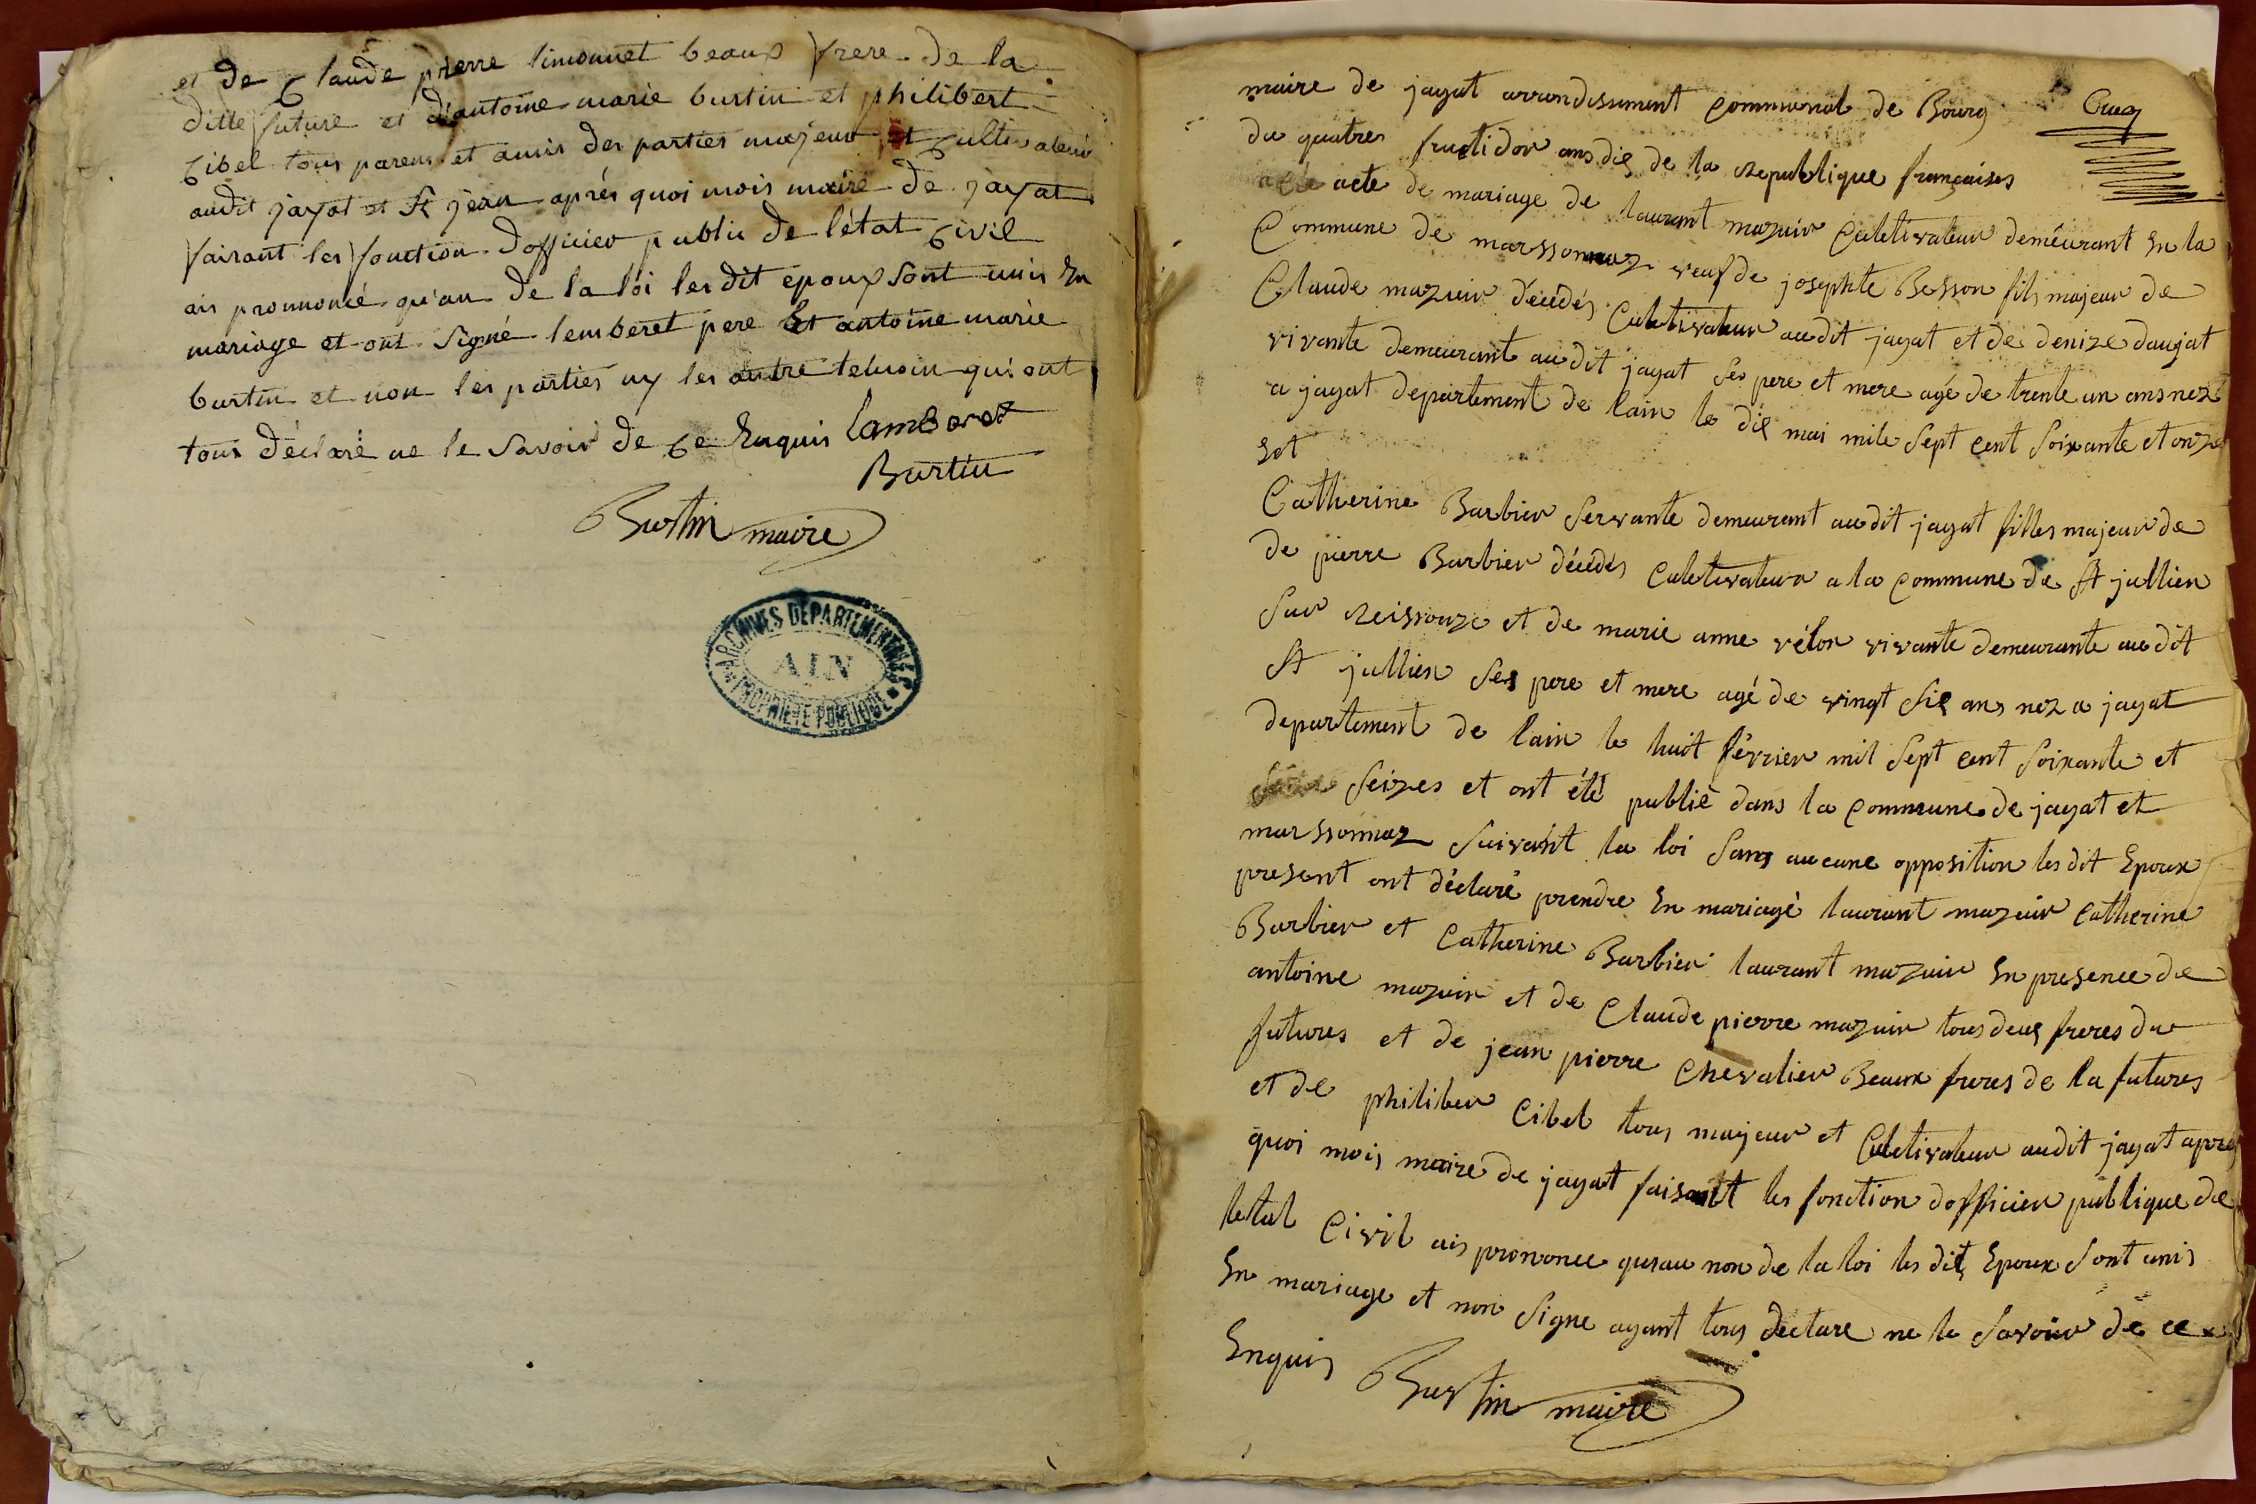 et de Claude pierre limonnet beaux frere de la
ditte future et d'antoine marie burtin et philibert
Cibel tous parens et amis des parties majeur et Cultivateur
audit jayat et St jean aprés quoi mois maire de jayat
faisant les fonction d'officier public de l'état Civil
ais pronnoncé qu'au de la loi les dit epoux sont unis En
mariage et ont signé lemberet pere Et antoine marie
burtin et non les parties ny les autre temoin qui ont
tous déclaré ne le savoir de Ce Enquis lamberet
Burtin
Burtin maire
ARCHIVES DÉPARTEMENTALES
AIN
PROPRIÉTÉ PUBLIQUE
maire de jayat arrondissement communal de Bourg
du quatres fructidor ans dix de la republique françaises
acte de mariage de laurant mazuir Culetivateur demeurant En la
Commune de marssonnaz veuf de josephte Besson fils majeur de
Claude mazuir décédés Culetivateur audit jayat et de denize daujat
vivante demeurant audit jayat ses pere et mere agé de trente un ans nez
a jayat departement de lain le dix mai mile sept cent soixante et onze
Et
Catherine Barbier servante demeurant audit jayat filles majeur de
de pierre Barbier décédés Culetivateur a la commune de St jullien
sur reissouze et de marie anne vélon vivante demeurante audit
St jullien ses pere et mere agé de vingt six ans nez a jayat
departement de lain le huit février mil sept cent soixante et
seizes et ont été publié dans la commune de jayat et
marssonnaz suivant la loi sans aucune opposition les dit Epoux
present ont déclaré prendre En mariagé laurant mazuir Catherine
Barbier et Catherine Barbier laurant mazuir En presence de
antoine mazuir et de Claude pierre mazuir tous deux freres du
futures et de jean pierre Chevalier Beaux freres de la futures
et de philiber Cibel tous majeur et Culetivateur audit jayat apres
quoi mois maire de jayat faisant les fonction dofficier publique de
letat Civil ais prononce qu'au non de la loi les dit Epoux sont unis
En mariage et non signe ayant tous declare ne le savoir de ce
Enquis Burtin maire